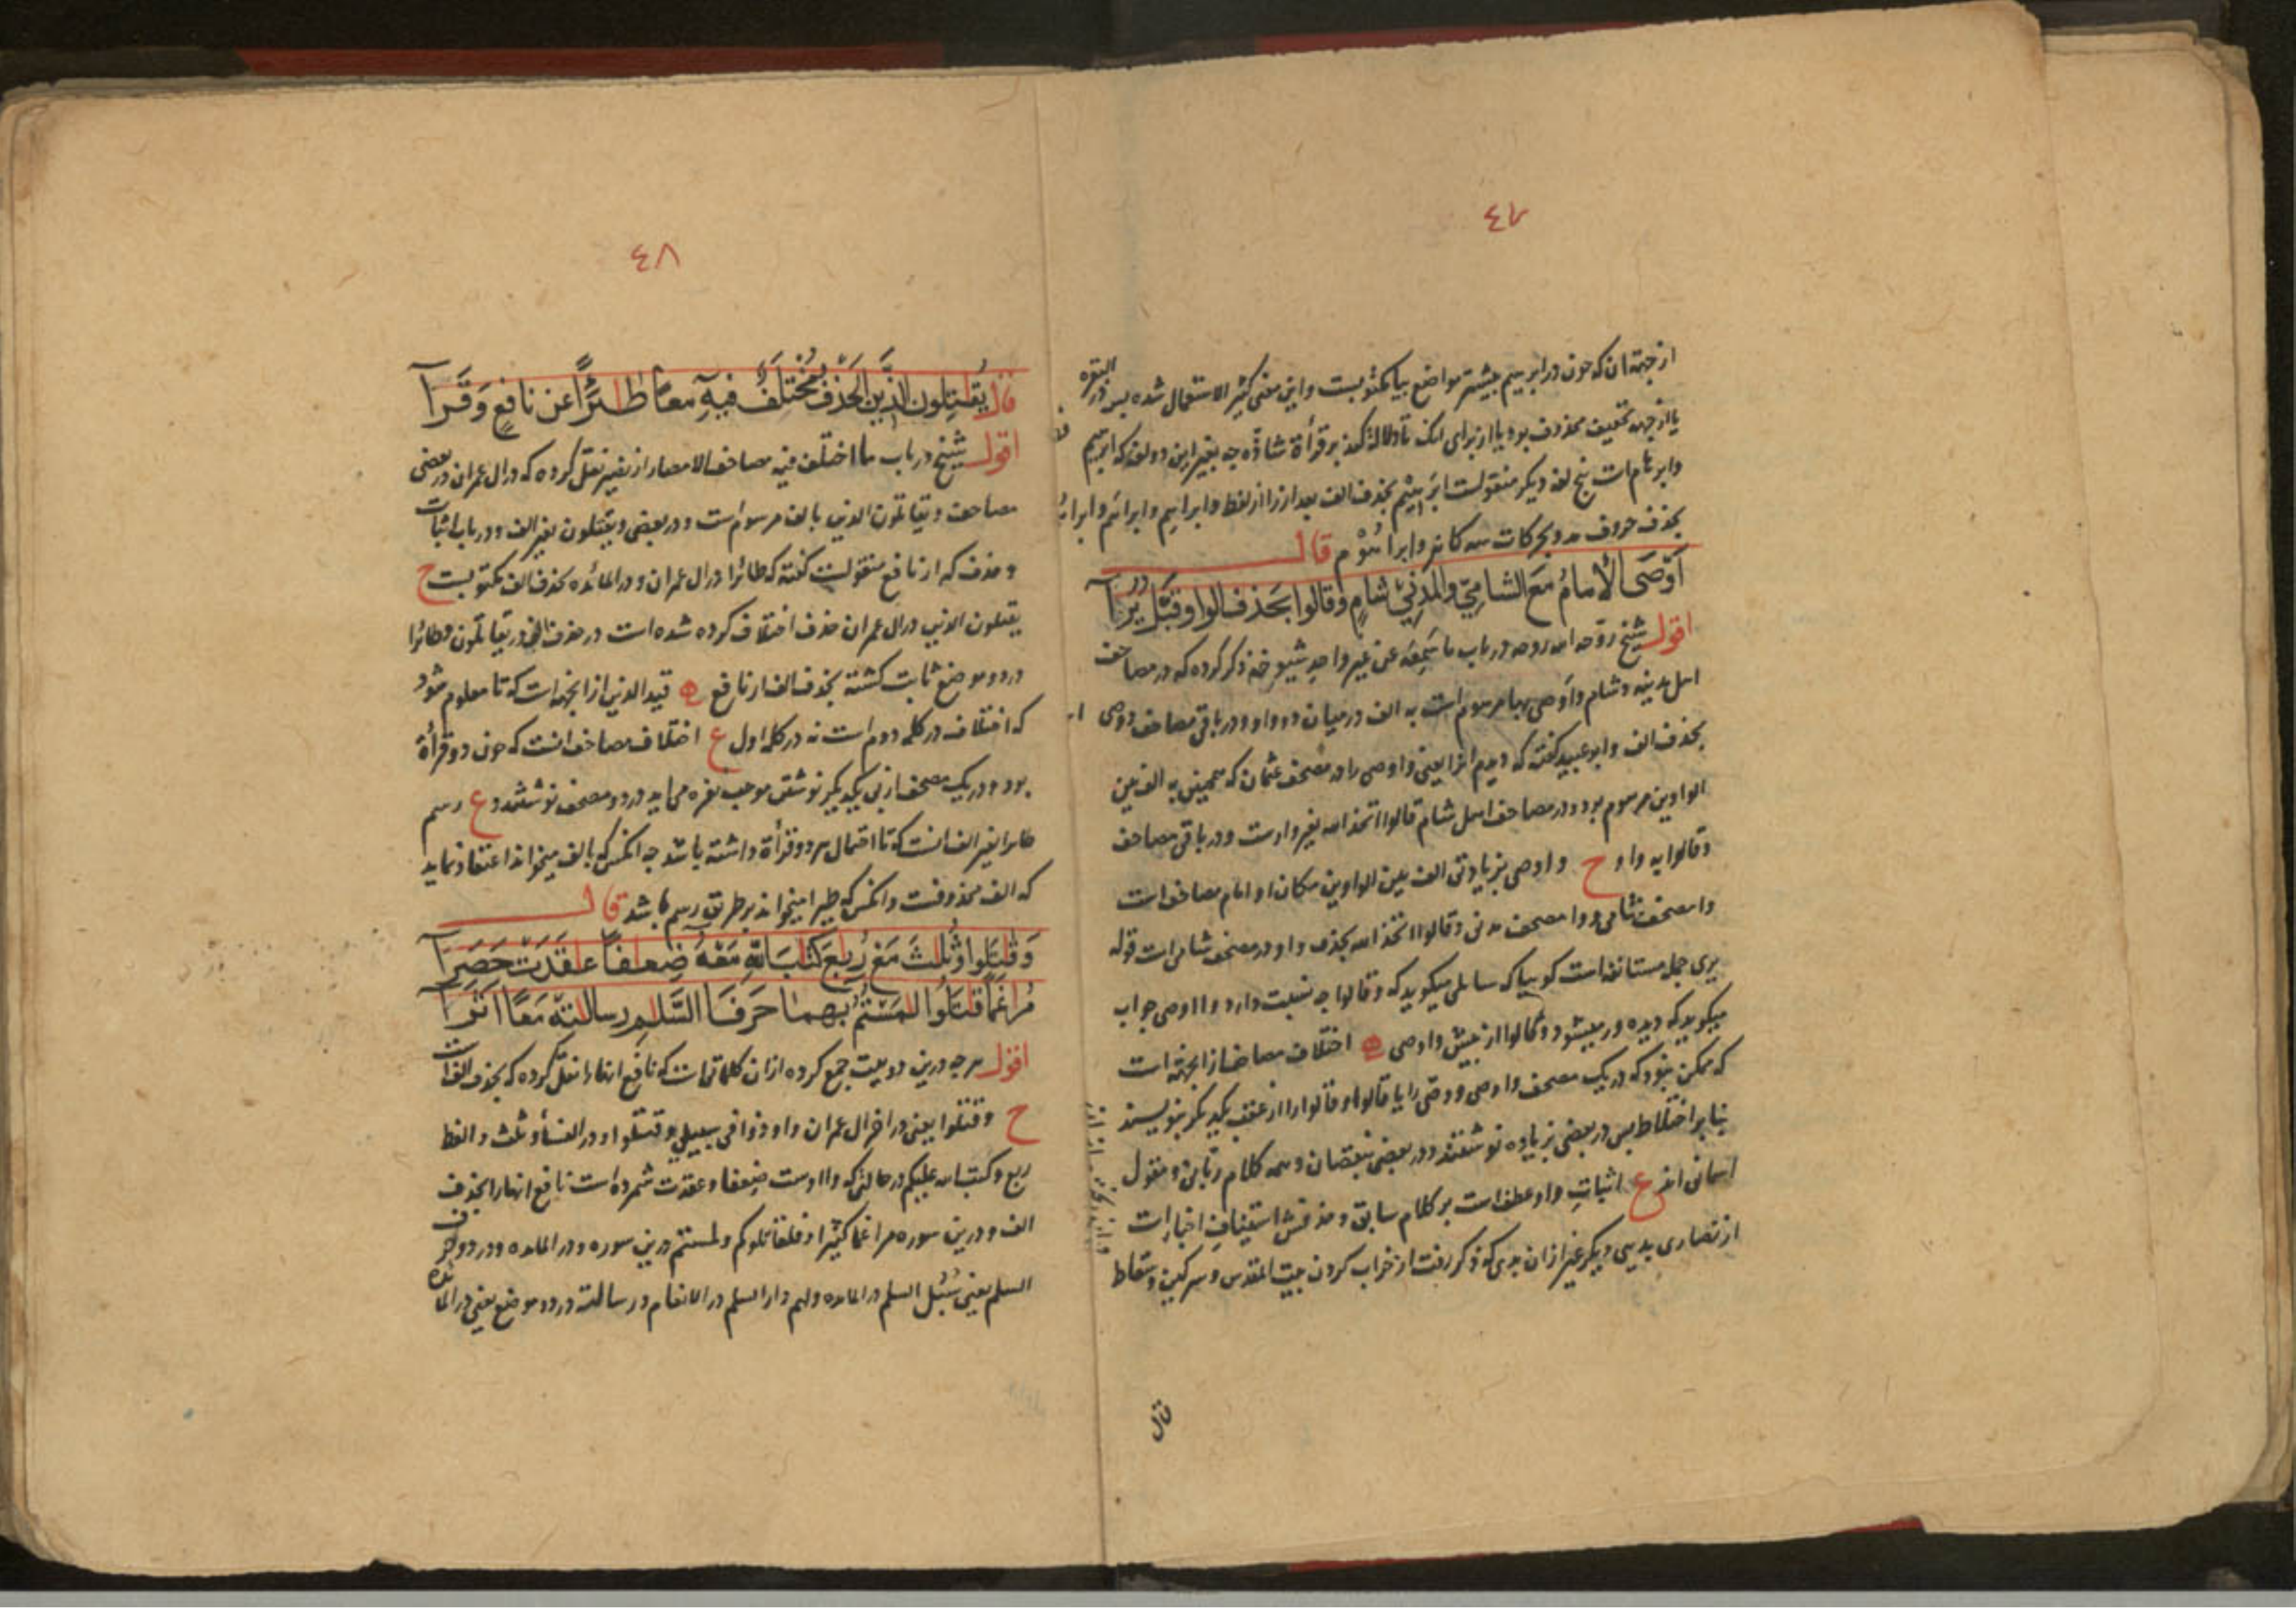 ٤٧
از جهة ان که چون در ابرهیم بیشتر مواضع بیا مکتوبست واین معنی کثیر الاستعمال شده پس در البقره
یا از جهه تخفیف محذوف بود یا از برای انک تا دلالة کند بر قرأة شاذّه چه بغیر این دو لغة که ابرهیم
وابراهام است پنج لغه دیکر منقولست ابرَهیْم بحذف الف بعد از را از لفظ وابراهِم وابراهَم وابراهُم
بحذف حروف مد وبحرکات سه کانه وابراهُوْم قال
اَوْصَی الْاِمَامُ مَعَ الشَّامِيِّ وَالْمَدَنِيِّ شَامٍ وَقَالُوا بِحَذْفِ الْوَاوِ قَبْلُ يُرَیٰ
اقول شیخ روّح الله روحه در باب ما سَمِعَهُ عن غیر واحدٍ شیوخه ذکر کرده که در مصاحف
اهل مدینه وشام واَوصی بها مرسوم است به الف در میان دو واو ودر باقی مصاحف ووصی
بحذف الف وابو عبید کفته که دیدم انرا یعنی واوصی را در مصحف عثمان که همچنین به الف بین
الواوین مرسوم بود ودر مصاحف اهل شام قالوا اتخذ الله بغیر واوست ودر باقی مصاحف
وقالوا به واو ح واوصی بزیادتی الف بین الواوین مکان او امام مصاحف است
وا مصحف شامی ووا مصحف مدنی وقالوا اتخذ الله بحذف واو در مصحف شامی است قوله
یری جمله مستانفه است کوییا که سایلی میکوید که وقالوا چه نسبت دارد وا اوصی جواب
میکوید که دیده ور میشود وقالوا از پیش واوصی ه اختلاف مصاحف از انجهة است
که ممکن نبود که در یک مصحف واوصی ووصّی را یا قالوا وقالوا را از عقب یکدیکر بنویسند
بنا بر اختلاط پس در بعضی بزیاده نوشتند ودر بعضی بنقصان وهمه کلام ربّانی ومنقول
اسمانی اند ع اثباتِ واو عطف است بر کلام سابق وحذفش استینافِ اخبارات
از نصاری بدیی دیکر غیر از ان بدی که ذکر رفت از خراب کردن بیت المقدس وسرکین وسقاط
قال
٤٨
قال يُقٰتِلُونَ الَّذِينَ الْحَذْفُ مُخْتَلِفٌ فِيهِ مَعًا طٰئِرًا عَنْ نَافِعٍ وَقَرَا
اقول شیخ در باب ما اختلف فیه مصاحف الامصار از نصیر نقل کرده که در ال عمران در بعضی
مصاحف ویقاتلون الذین بالف مرسوم است ودر بعضی ویقتلون بغیر الف ودر باب اثبات
وحذف که از نافع منقولست کفته که طائرا در ال عمران ودر المائده بحذف الف مکتوبست ح
یقتلون الذین در ال عمران حذف اختلاف کرده شده است در حذف الف در یقاتلون وطائرا
در دو موضع ثابت کشته بحذف الف از نافع ه قید الذین از انجهة است که تا معلوم شود
که اختلاف در کلمه دوم است نه در کلمه اول ع اختلاف مصاحف انست که چون دو قرأة
بود ودر یک مصحف از پی یکدیکر نوشتن موجب نفره می اید در دو مصحف نوشتند و ع رسم
طیرا بغیر الف انست که تا احتمال هر دو قرأة داشته باشد چه انکس که بالف میخواند اعتقاد نماید
که الف محذوفست وانکس که طیرا میخواند بر طریق رسم باشد قال
وَقٰتَلُوا وَثُلٰثَ مَعْ رُبٰعَ كِتٰبَ اللّٰهِ مَعْهُ ضِعٰفًا عٰقَدَتْ حَصَرَا
مُرٰغَمًا قٰتَلُوا لٰمَسْتُمُ بِهِمَا حَرْفَا السَّلٰمِ رِسَالٰتِهٖ مَعًا اَثَرَا
اقول هر چه درین دو بیت جمع کرده از ان کلماتیست که نافع انهارا نقل کرده که بحذف الف است
ح وقتلوا یعنی در اخر ال عمران واوذوا فی سبیلی وقتلوا ودر النسأ وثلث والفظ
ربع وکتب الله علیکم در حالتی که وا اوست ضِعفا وعقدت شمرده است نافع انهارا بحذف
الف ودرین سوره مراغما کثیرا وفلقاتلوکم ولمستم درین سوره ودر المائده ودر دو حرف
السلم یعنی سُبُل السلم در المائده ولهم دار السلم در الانعام ورسالته در دو موضع یعنی در المائده